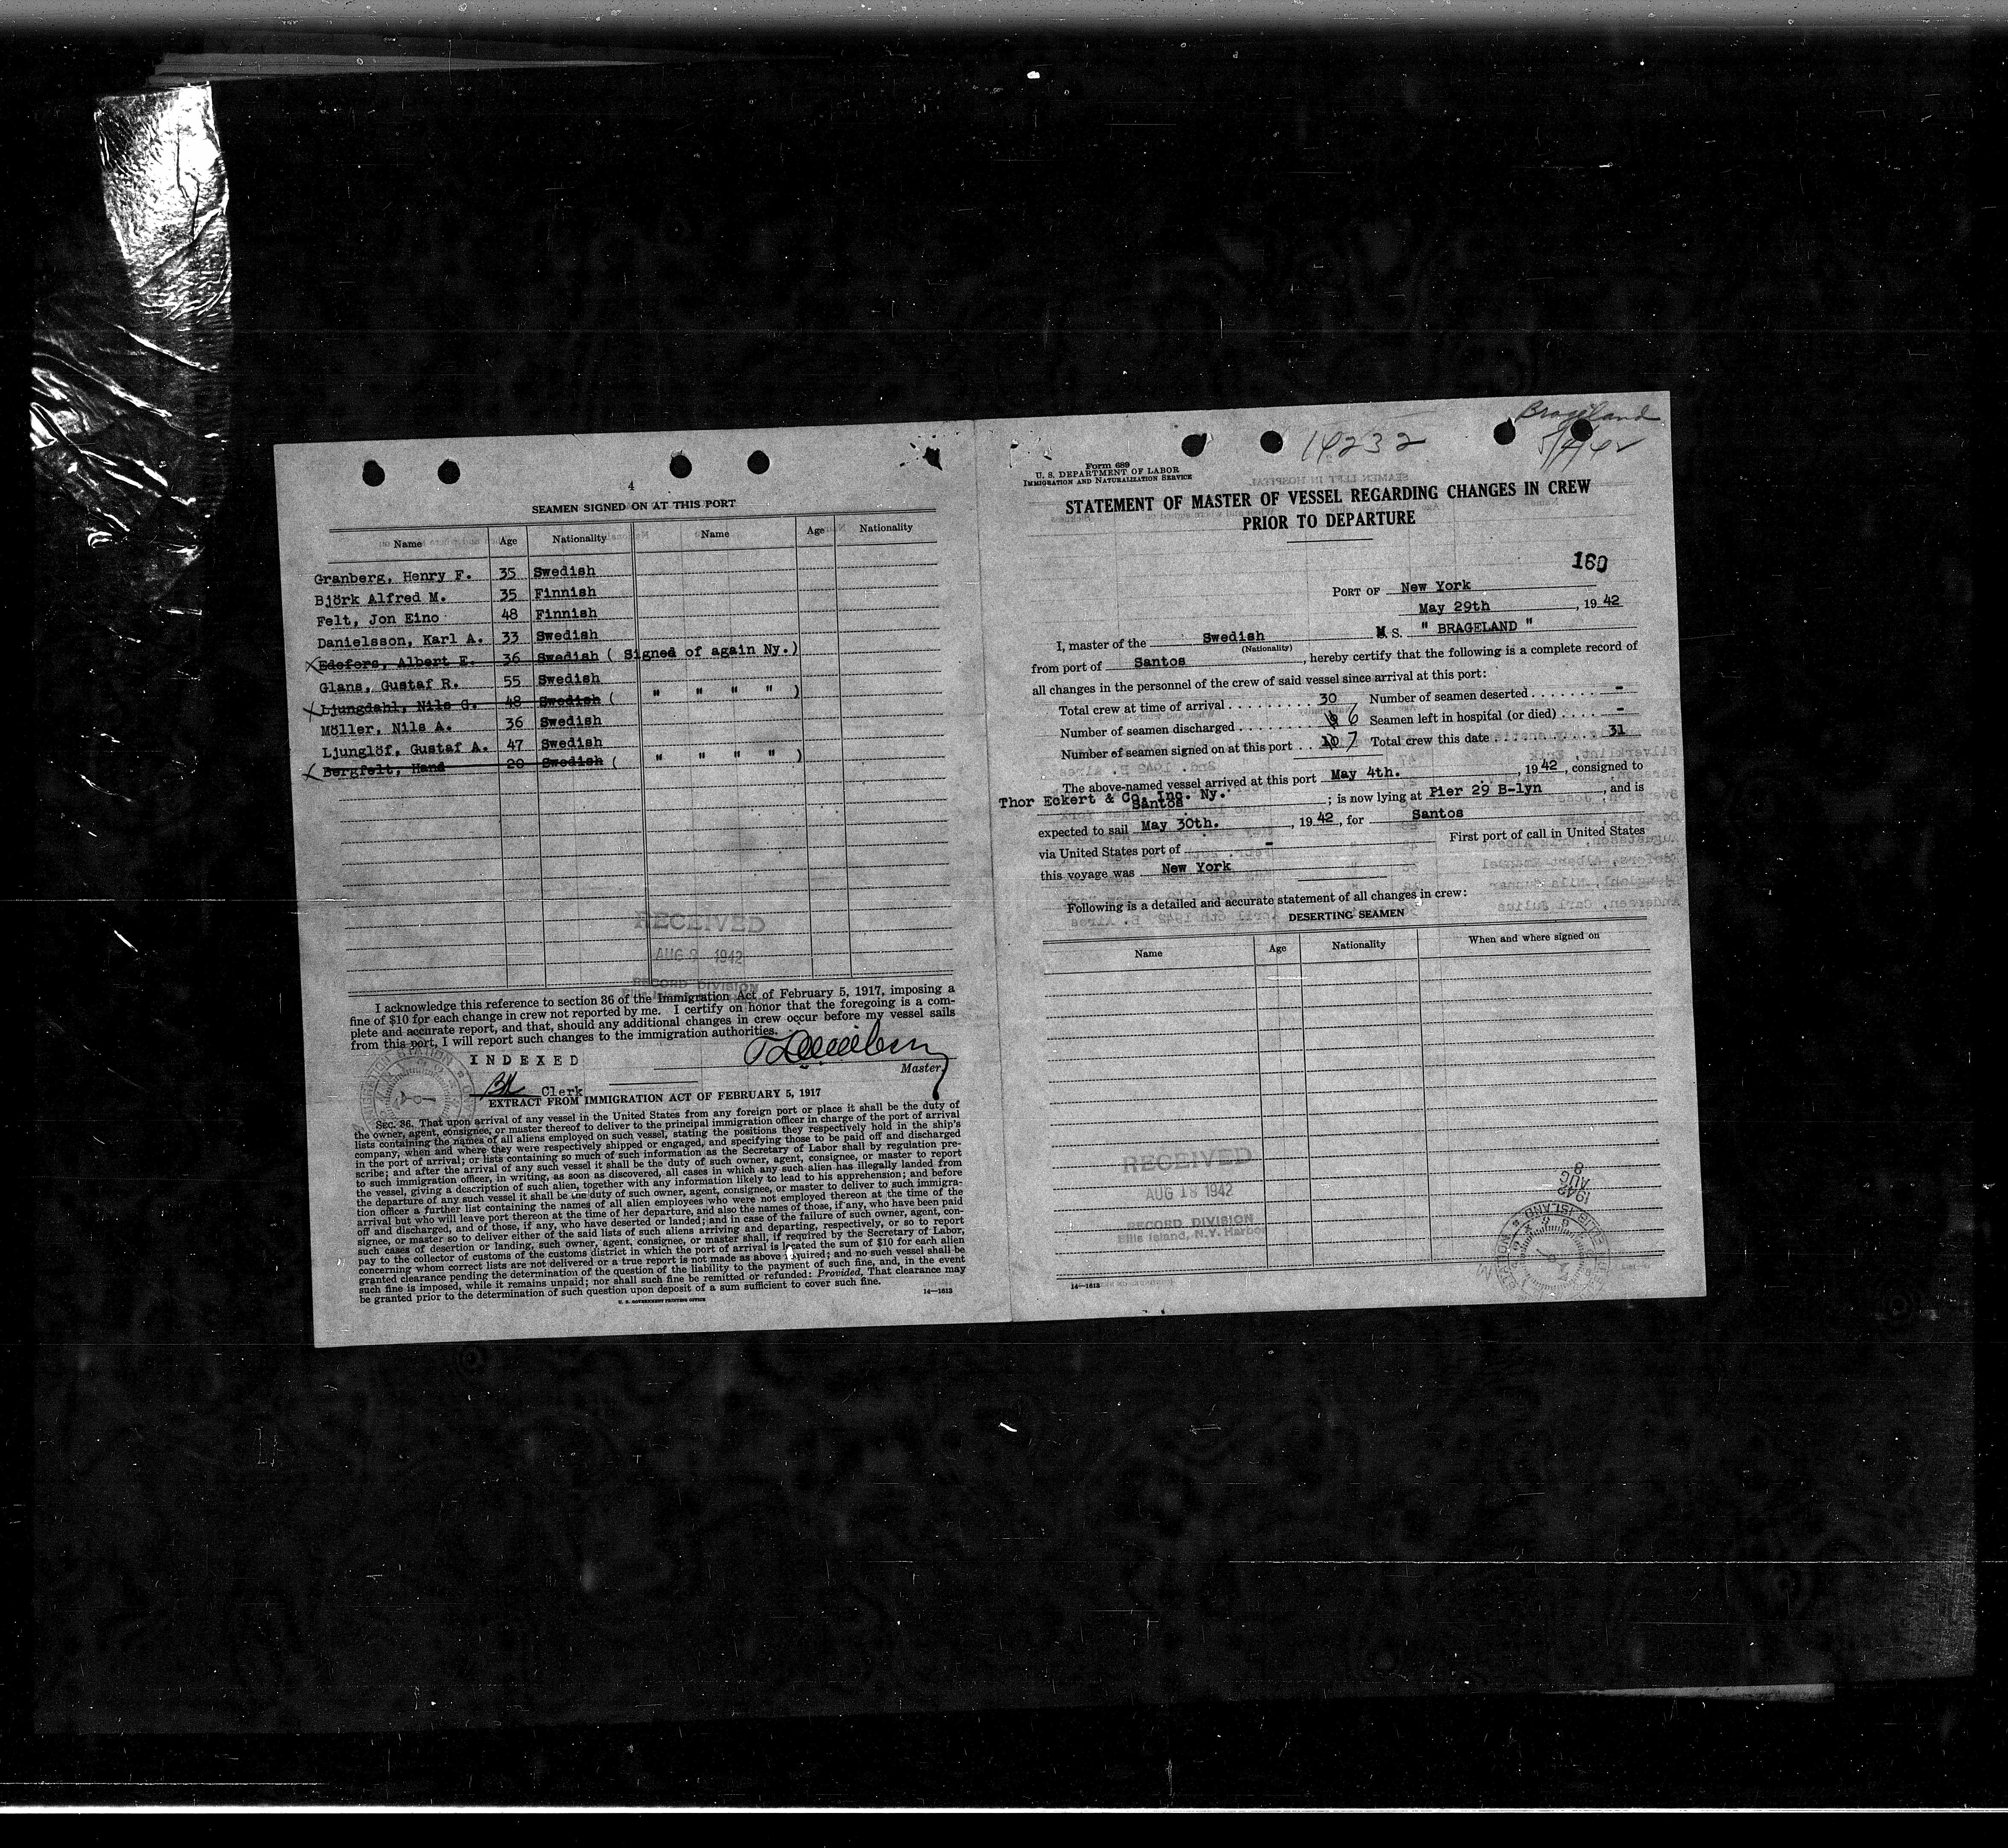 4
SEAMEN SIGNED ON AT THIS PORT
Name Age Nationality Name Age Nationality
Granberg, Henry F. 35 Swedish
Björk Alfred M. 35 Finnish
Felt, Jon Eino 48 Finnish
Danielsson, Karl A. 33 Swedish
Edefors, Albert E. 36 Swedish ( Signed of again Ny.)
Glans, Gustaf R. 55 Swedish
Ljungdahl, Nils G. 48 Swedish ( " " " " )
Möller, Nils A. 36 Swedish
Ljunglöf, Gustaf A. 47 Swedish
Bergfelt, Hans 20 Swedish ( " " " " )
RECEIVED
AUG 1942
RECORD DIVISION
I acknowledge this reference to section 36 of the Immigration Act of February 5, 1917, imposing a
fine of $10 for each change in crew not reported by me. I certify on honor that the foregoing is a com-
plete and accurate report, and that, should any additional changes in crew occur before my vessel sails
from this port, I will report such changes to the immigration authorities.
INDEXED
Master.
Clerk
EXTRACT FROM IMMIGRATION ACT OF FEBRUARY 5, 1917
SEC. 36. That upon arrival of any vessel in the United States from any foreign port or place it shall be the duty of
the owner, agent, consignee, or master thereof to deliver to the principal immigration officer in charge of the port of arrival
lists containing the names of all aliens employed on such vessel, stating the positions they respectively hold in the ship's
company, when and where they were respectively shipped or engaged, and specifying those to be paid off and discharged
in the port of arrival; or lists containing so much of such information as the Secretary of Labor shall by regulation pre-
scribe; and after the arrival of any such vessel it shall be the duty of such owner, agent, consignee, or master to report
to such immigration officer, in writing, as soon as discovered, all cases in which any such alien has illegally landed from
the vessel, giving a description of such alien, together with any information likely to lead to his apprehension; and before
the departure of any such vessel it shall be the duty of such owner, agent, consignee, or master to deliver to such immigra-
tion officer a further list containing the names of all alien employees who were not employed thereon at the time of the
arrival but who will leave port thereon at the time of her departure, and also the names of those, if any, who have been paid
off and discharged, and of those, if any, who have deserted or landed; and in case of the failure of such owner, agent, con-
signee, or master so to deliver either of the said lists of such aliens arriving and departing, respectively, or so to report
such cases of desertion or landing, such owner, agent, consignee, or master shall, if required by the Secretary of Labor,
pay to the collector of customs of the customs district in which the port of arrival is located the sum of $10 for each alien
concerning whom correct lists are not delivered or a true report is not made as above required; and no such vessel shall be
granted clearance pending the determination of the question of the liability to the payment of such fine, and, in the event
such fine is imposed, while it remains unpaid; nor shall such fine be remitted or refunded: Provided, That clearance may
be granted prior to the determination of such question upon deposit of a sum sufficient to cover such fine.
U. S. GOVERNMENT PRINTING OFFICE 14—1613
Brageland
5/4/42
14232
Form 689
U. S. DEPARTMENT OF LABOR
IMMIGRATION AND NATURALIZATION SERVICE
STATEMENT OF MASTER OF VESSEL REGARDING CHANGES IN CREW
PRIOR TO DEPARTURE
160
PORT OF New York
May 29th , 19 42
I, master of the Swedish M. S. " BRAGELAND "
(Nationality)
from port of Santos , hereby certify that the following is a complete record of
all changes in the personnel of the crew of said vessel since arrival at this port:
Total crew at time of arrival 30 Number of seamen deserted -
Number of seamen discharged 6 Seamen left in hospital (or died) -
Number of seamen signed on at this port 10 7 Total crew this date 31
The above-named vessel arrived at this port May 4th. , 19 42 , consigned to
Thor Eckert & Co. Inc. Ny. Santos ; is now lying at Pier 29 B-lyn , and is
expected to sail May 30th. , 19 42 , for Santos
via United States port of - First port of call in United States
this voyage was New York
Following is a detailed and accurate statement of all changes in crew:
DESERTING SEAMEN
Name Age Nationality When and where signed on
RECEIVED
AUG 18 1942
RECORD DIVISION
Ellis Island, N.Y. Harbor
1942
AUG
8
14—1613